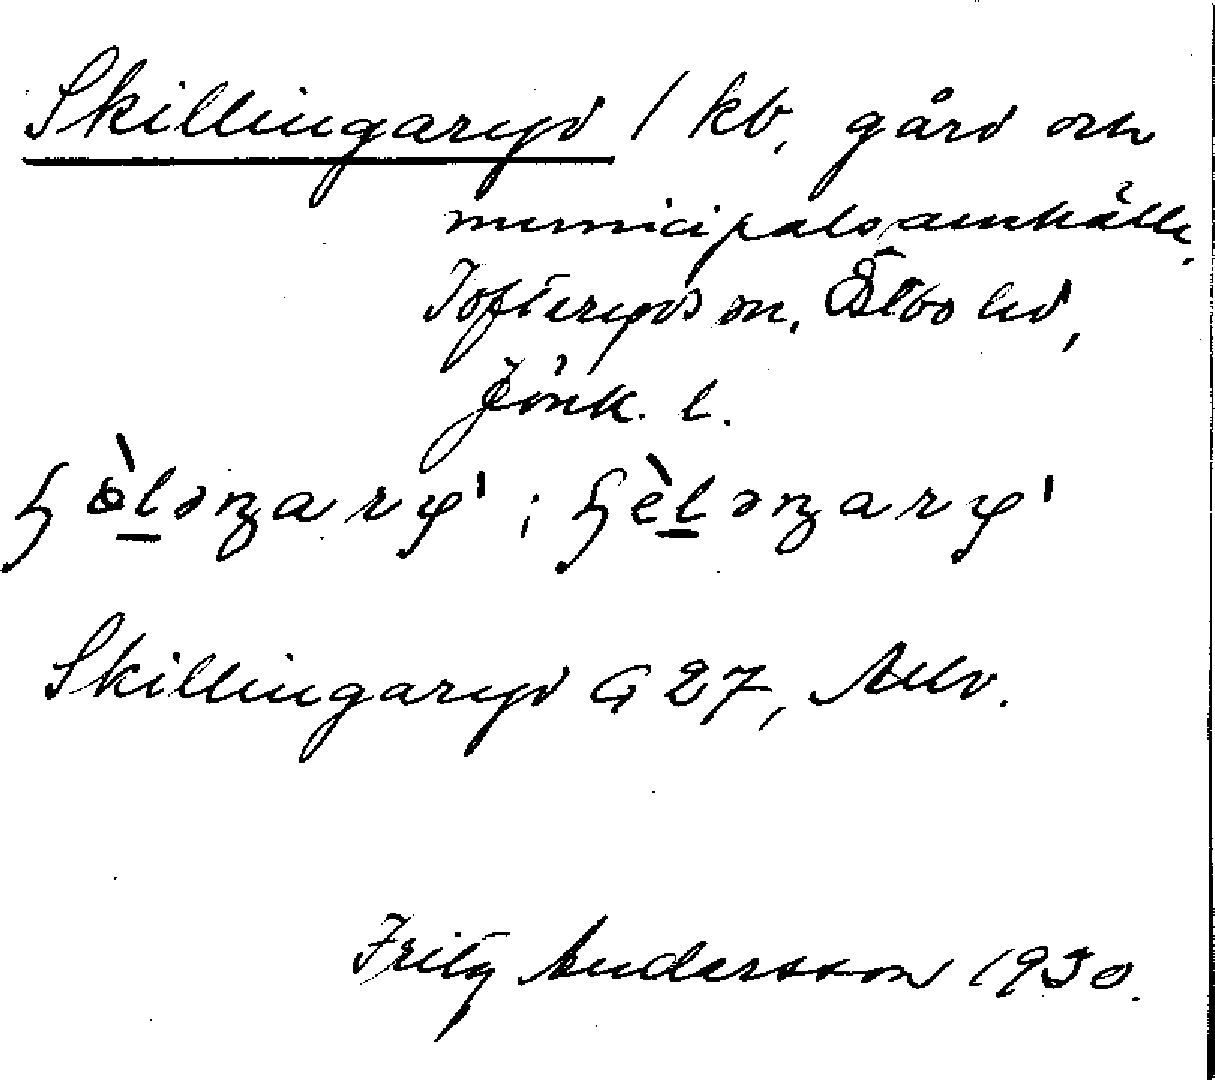 Skillingaryd / kb, gård och
municipalsamhälle.
Tofteryds sn, Östbo hd,
Jönk. l.
ɧə̀lənarý ; ɧèlənarý
Skillingaryd G 27, Allv.
Fritz Andersson 1930.